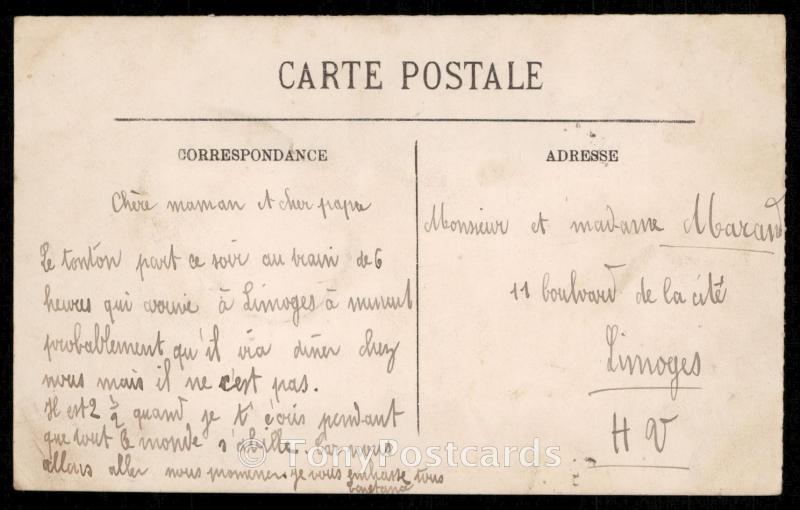 CARTE POSTALE
CORRESPONDANCE
ADRESSE
Chère maman et cher papa
Le tonton part ce soir au train de 6
heures qui arrive à Limoges à minuit
probablement qu'il ira diner chez
nous mais il ne c'est pas.
Il est 2 ½ quand je t'écris pendant
que tout le monde s'abille. Car nous
allons aller nous promener. je vous embrasse tous
Monsieur et madame
11 boulvard de la cité
Limoges
H V
© TonyPostcards